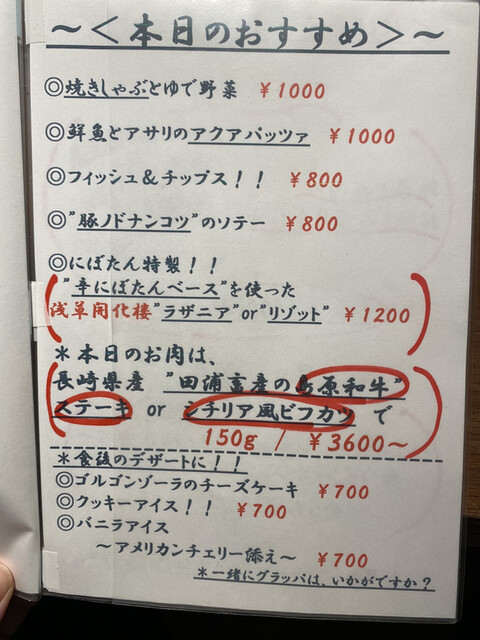 ～＜本日のおすすめ＞～
◎焼きしゃぶとゆで野菜 ￥1000
◎鮮魚とアサリのアクアパッツァ ￥1000
◎フィッシュ＆チップス！！ ￥800
◎”豚ノドナンコツ”のソテー ￥800
◎にぼたん特製！！
”辛にぼたんベース”を使った
浅草開化楼”ラザニア”or”リゾット” ￥1200
＊本日のお肉は、
長崎県産 ”田浦畜産の島原和牛”
ステーキ or シチリア風ビフカツ で
150g / ￥3600～
＊食後のデザートに！！
◎ゴルゴンゾーラのチーズケーキ ￥700
◎クッキーアイス！！ ￥700
◎バニラアイス
～アメリカンチェリー添え～ ￥700
＊一緒にグラッパは、いかがですか？